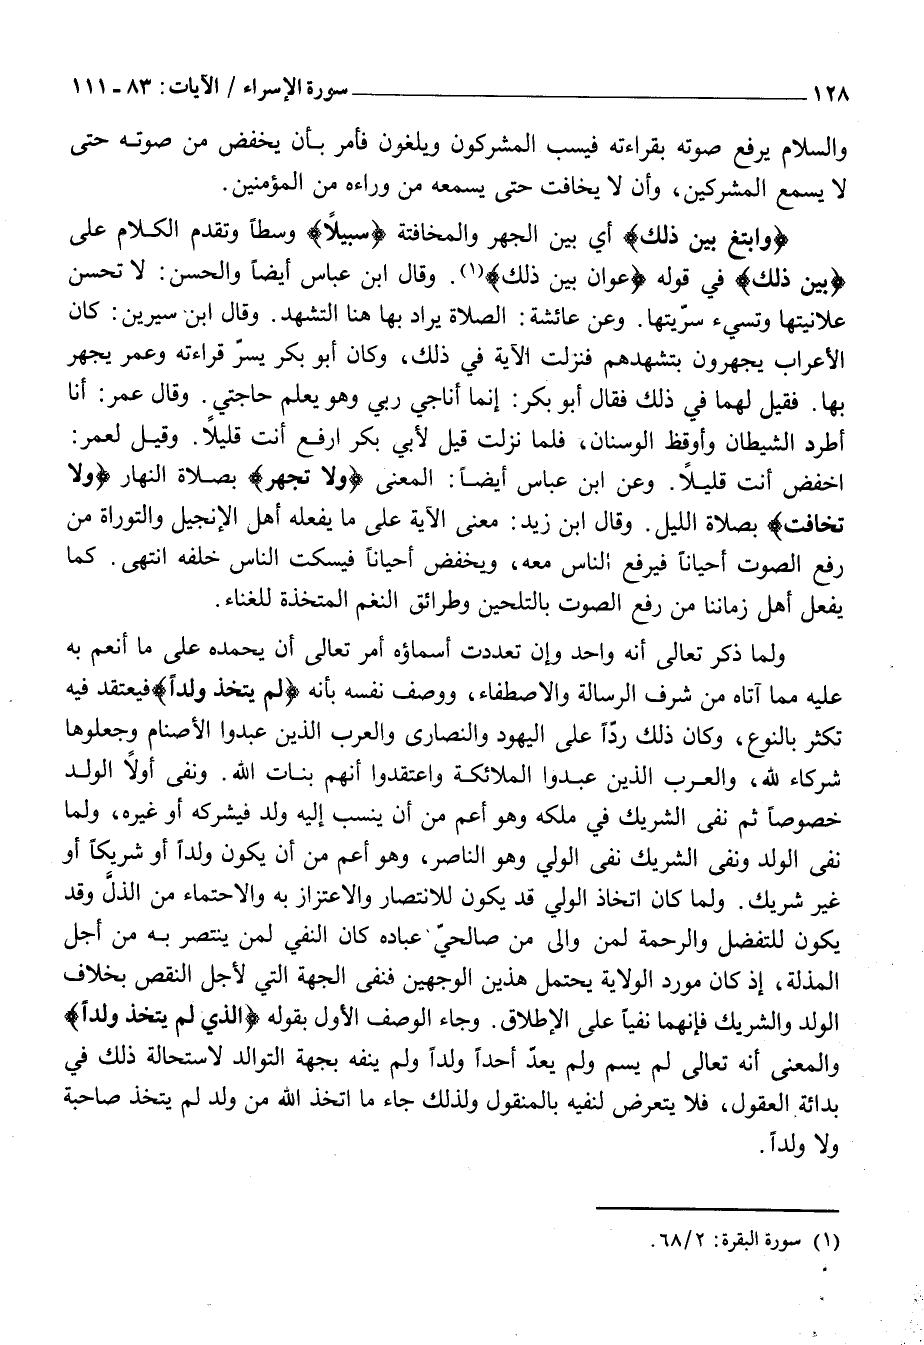 ١٢٨ ــــــــــــــــــــــــــــــــــــــــــــــــ سورة الإسراء / الآيات: ٨٣ ـ ١١١
والسلام يرفع صوته بقراءته فيسب المشركون ويلغون فأمر بـأن يخفض من صوتـه حتى
لا يسمع المشركين، وأن لا يخافت حتى يسمعه من وراءه من المؤمنين.
﴿وابتغ بين ذلك﴾ أي بين الجهر والمخافتة ﴿سبيلاً﴾ وسطاً وتقدم الكـلام على
﴿بين ذلك﴾ في قوله ﴿عوان بين ذلك﴾(١). وقال ابن عباس أيضاً والحسن: لا تحسن
علانيتها وتسيء سرّيتها. وعن عائشة: الصلاة يراد بها هنا التشهد. وقال ابن سيرين: كان
الأعراب يجهرون بتشهدهم فنزلت الآية في ذلك، وكان أبو بكر يسرّ قراءته وعمر يجهر
بها. فقيل لهما في ذلك فقال أبو بكر: إنما أناجي ربي وهو يعلم حاجتي. وقال عمر: أنا
أطرد الشيطان وأوقظ الوسنان، فلما نزلت قيل لأبي بكر ارفـع أنت قليلاً. وقيـل لعمر:
اخفض أنت قليـلاً. وعن ابن عباس أيضـاً: المعنى ﴿ولا تجهر﴾ بصـلاة النهار ﴿ولا
تخافت﴾ بصلاة الليل. وقال ابن زيد: معنى الآية على ما يفعله أهل الإنجيل والتوراة من
رفع الصوت أحياناً فيرفع الناس معه، ويخفض أحياناً فيسكت الناس خلفه انتهى. كما
يفعل أهل زماننا من رفع الصوت بالتلحين وطرائق النغم المتخذة للغناء.
ولما ذكر تعالى أنه واحد وإن تعددت أسماؤه أمر تعالى أن يحمده على ما أنعم به
عليه مما آتاه من شرف الرسالة والاصطفاء، ووصف نفسه بأنه ﴿لم يتخذ ولداً﴾فيعتقد فيه
تكثر بالنوع، وكان ذلك ردّاً على اليهود والنصارى والعرب الذين عبدوا الأصنام وجعلوها
شركاء لله، والعـرب الذين عبـدوا الملائكـة واعتقدوا أنهم بنـات الله. ونفى أولاً الولـد
خصوصاً ثم نفى الشريك في ملكه وهو أعم من أن ينسب إليه ولد فيشركه أو غيره، ولما
نفى الولد ونفى الشريك نفى الولي وهو الناصر، وهو أعم من أن يكون ولداً أو شريكاً أو
غير شريك. ولما كان اتخاذ الولي قد يكون للانتصار والاعتزاز به والاحتماء من الذلّ وقد
يكون للتفضل والرحمة لمن والى من صالحيّ عباده كان النفي لمن ينتصر بـه من أجل
المذلة، إذ كان مورد الولاية يحتمل هذين الوجهين فنفى الجهة التي لأجل النقص بخلاف
الولد والشريك فإنهما نفياً على الإطلاق. وجاء الوصف الأول بقوله ﴿الذي لم يتخذ ولداً﴾
والمعنى أنه تعالى لم يسم ولم يعدّ أحداً ولداً ولم ينفه بجهة التوالد لاستحالة ذلك في
بدائة العقول، فلا يتعرض لنفيه بالمنقول ولذلك جاء ما اتخذ الله من ولد لم يتخذ صاحبة
ولا ولداً.
(١) سورة البقرة: ٦٨/٢.